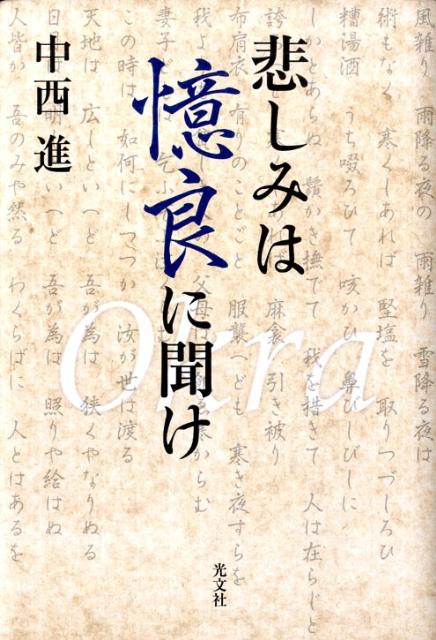 悲しみは
憶良に聞け
中西 進
Okura
光文社
風雑り 雨降る夜の 雨雑り 雪降る夜は
術もなく 寒くしあれば 堅塩を 取りつづしろひ
糟湯酒 うち啜ろひて 咳かひ 鼻びしびしに
しかとあらぬ 鬚かき撫でて 我を措きて 人は在らじと
誇 麻衾 引き被り
布肩衣 有りのことごと 服襲へども 寒き夜すらを
我よ の 父母は 寒からむ
妻子 乞ふ
この時は 如何にしつつか 汝が世は渡る
天地は 広しといへど 吾が為は 狭くやなりぬる
日 いへど 吾が為は 照りや給はぬ
人皆か 吾のみや然る わくらばに 人とはあるを